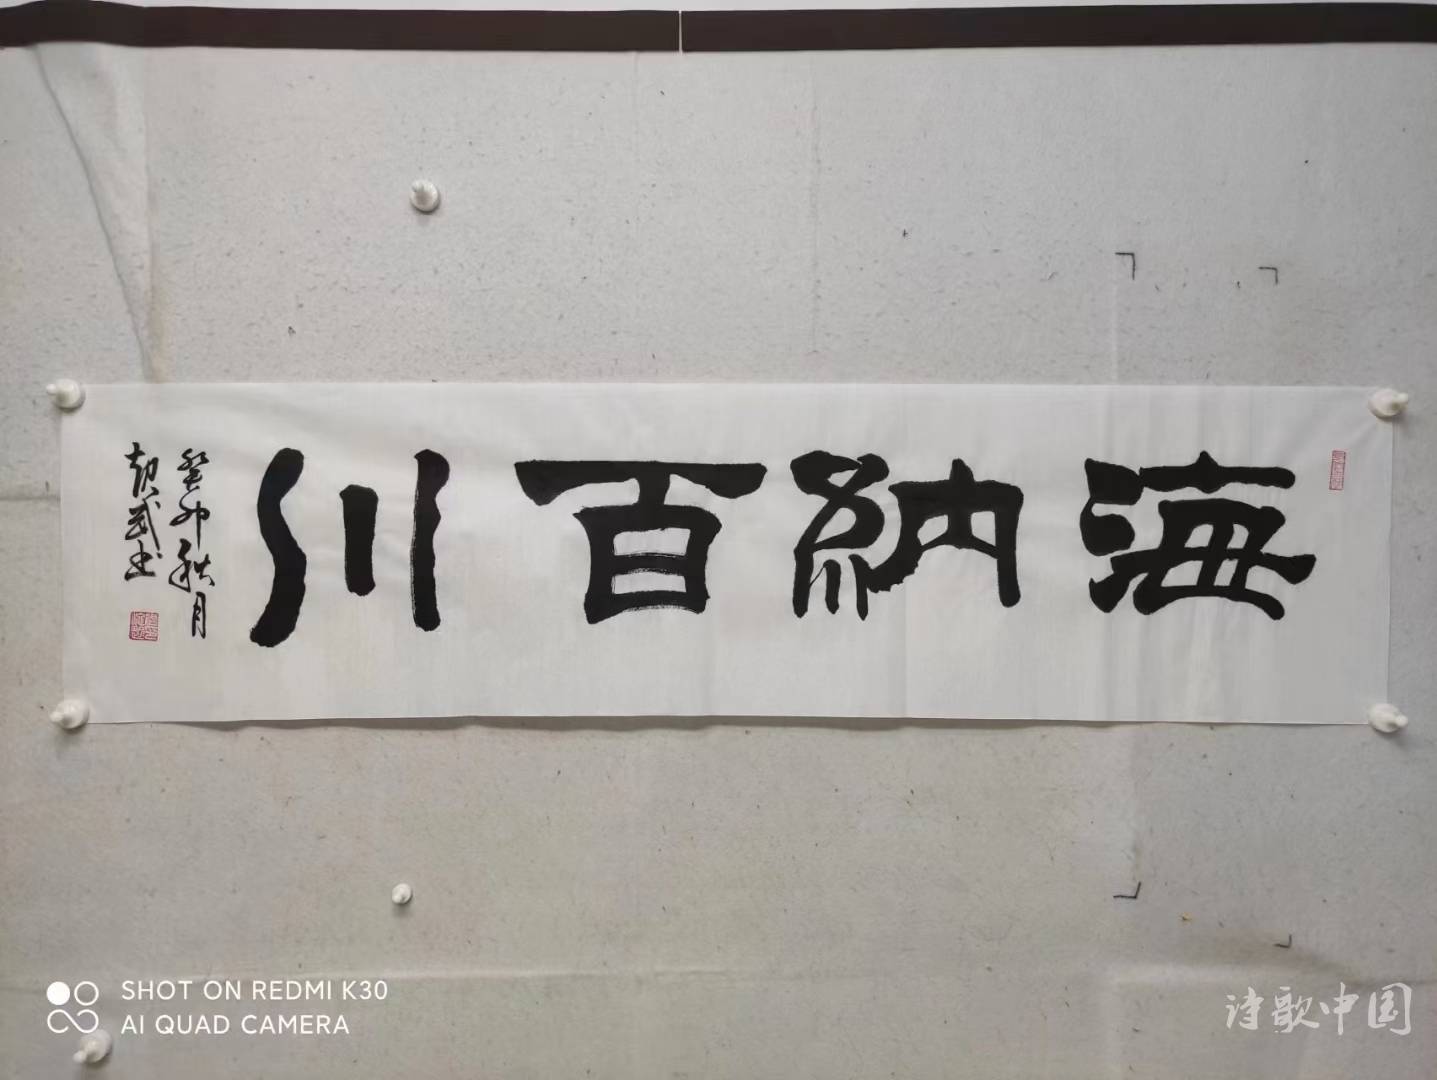 海納百川
癸卯秋月
超武书
SHOT ON REDMI K30
AI QUAD CAMERA
诗歌中国